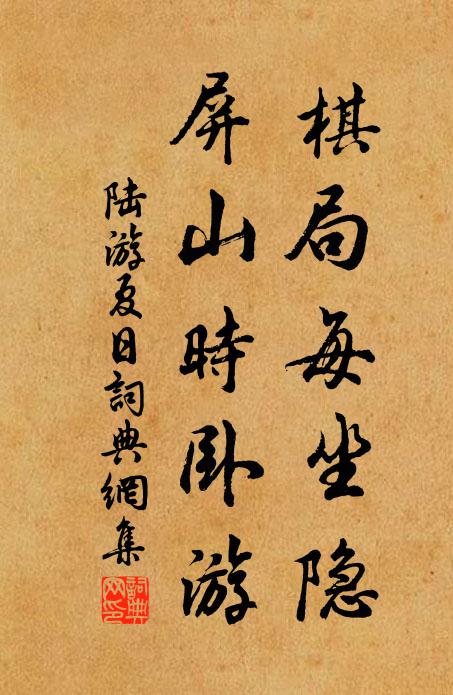 棋局每坐隐
屏山時卧游
陆游夏日詞典網集
詞典网印